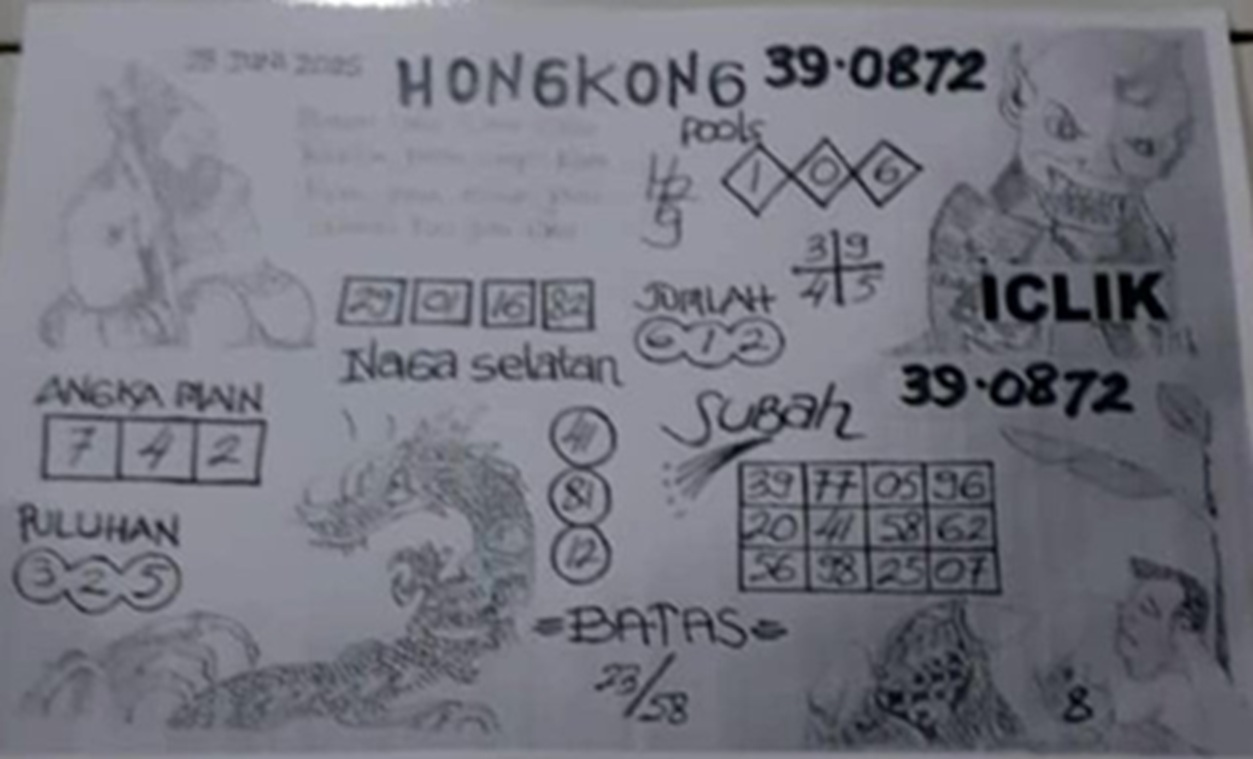 JUNI 2025
HONGKONG 39·0872
Pools
1 0 6
3 9
4 5
29 01 16 82
JUMLAH
6 1 2
ICLIK
Naga selatan
39·0872
ANGKA MAIN
7 4 2
SUBAH
41
81
12
39 77 05 96
20 41 58 62
56 98 25 07
PULUHAN
3 2 5
=BATAS=
23/58
8